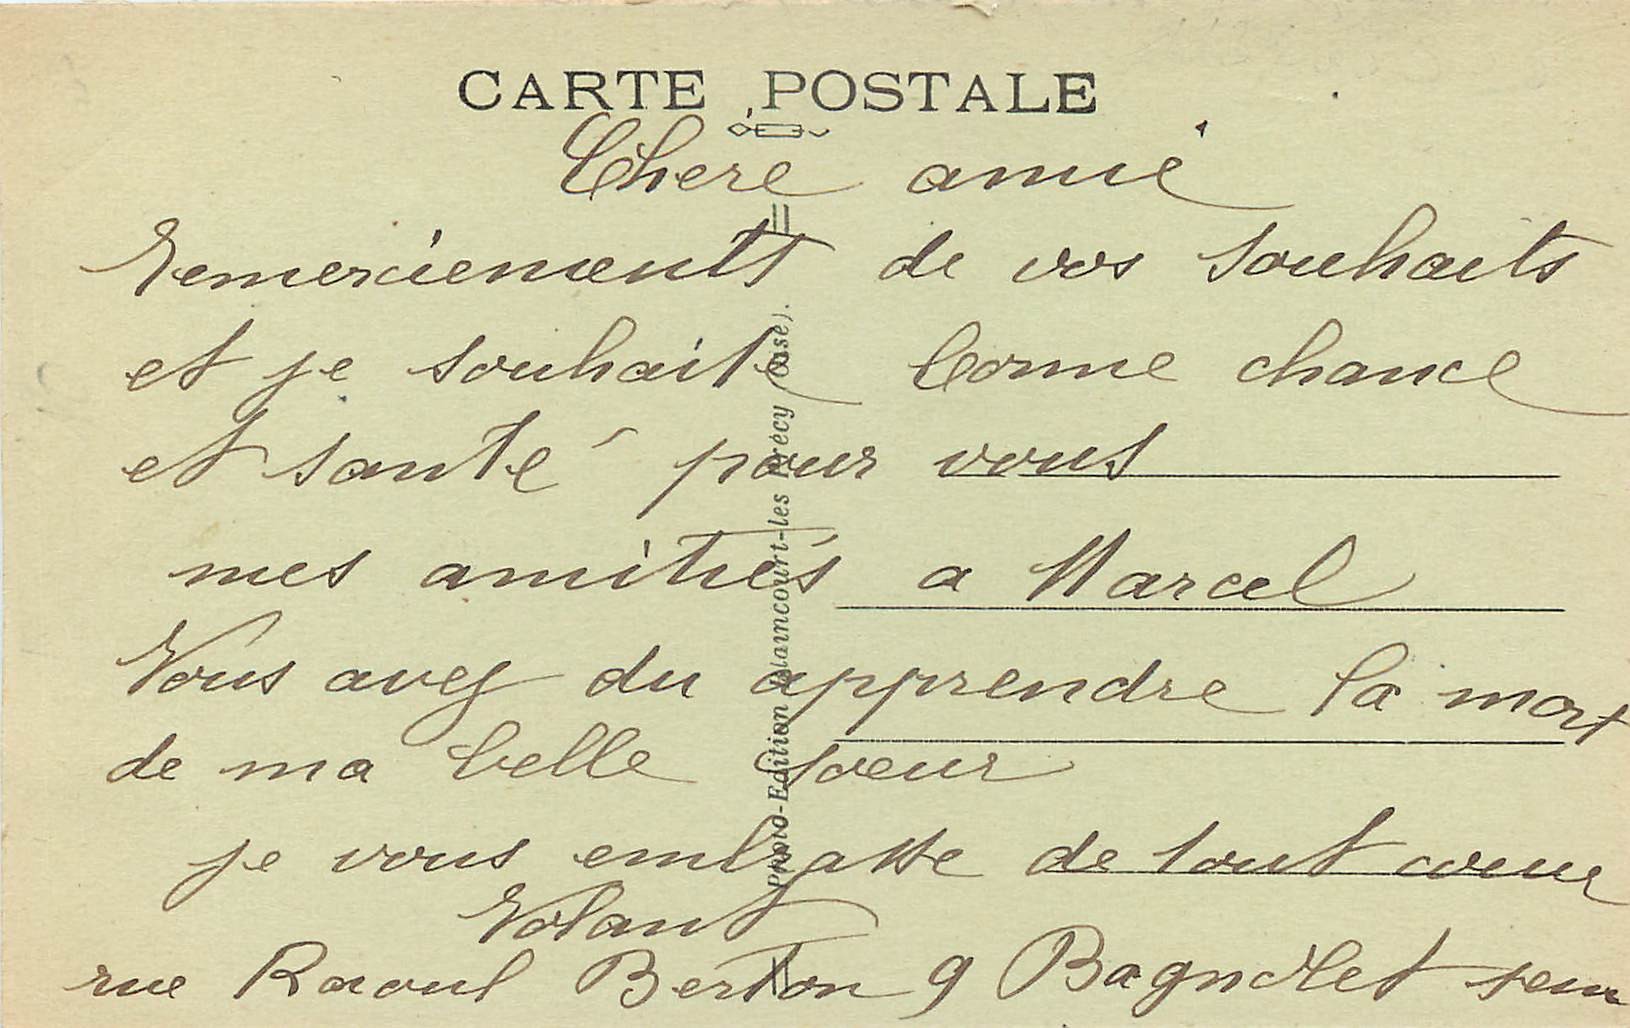 CARTE POSTALE
Chere amie
Remerciements de vos souhaits
et je souhaite bonne chance
et santé pour vous
mes amitiés a Marcel
Vous avez du apprendre la mort
de ma belle soeur
je vous embrasse de tout coeur
Volant
rue Raoul Berton 9 Bagnolet
Photo-Edition Blaincourt-les Précy (Oise).